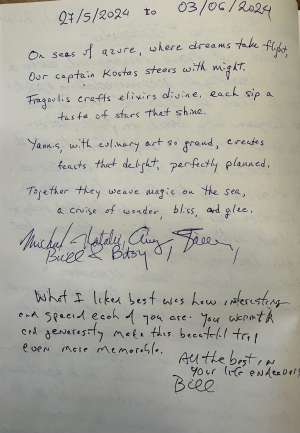 27/5/2024 to 03/06/2024
On seas of azure, where dreams take flight,
Our captain Kostas steers with might.
Fragoulis crafts elixirs divine, each sip a
taste of stars that shine.
Yannis, with culinary art so grand, creates
feasts that delight, perfectly planned.
Together they weave magic on the sea,
a cruise of wonder, bliss, and glee.
Michal, Natalie, Amy,
Bill & Betsy,
What I liked best was how interesting
and special each of you are. Your warmth
and generosity make this beautiful trip
even more memorable.
All the best in
your life endeavors
Bill